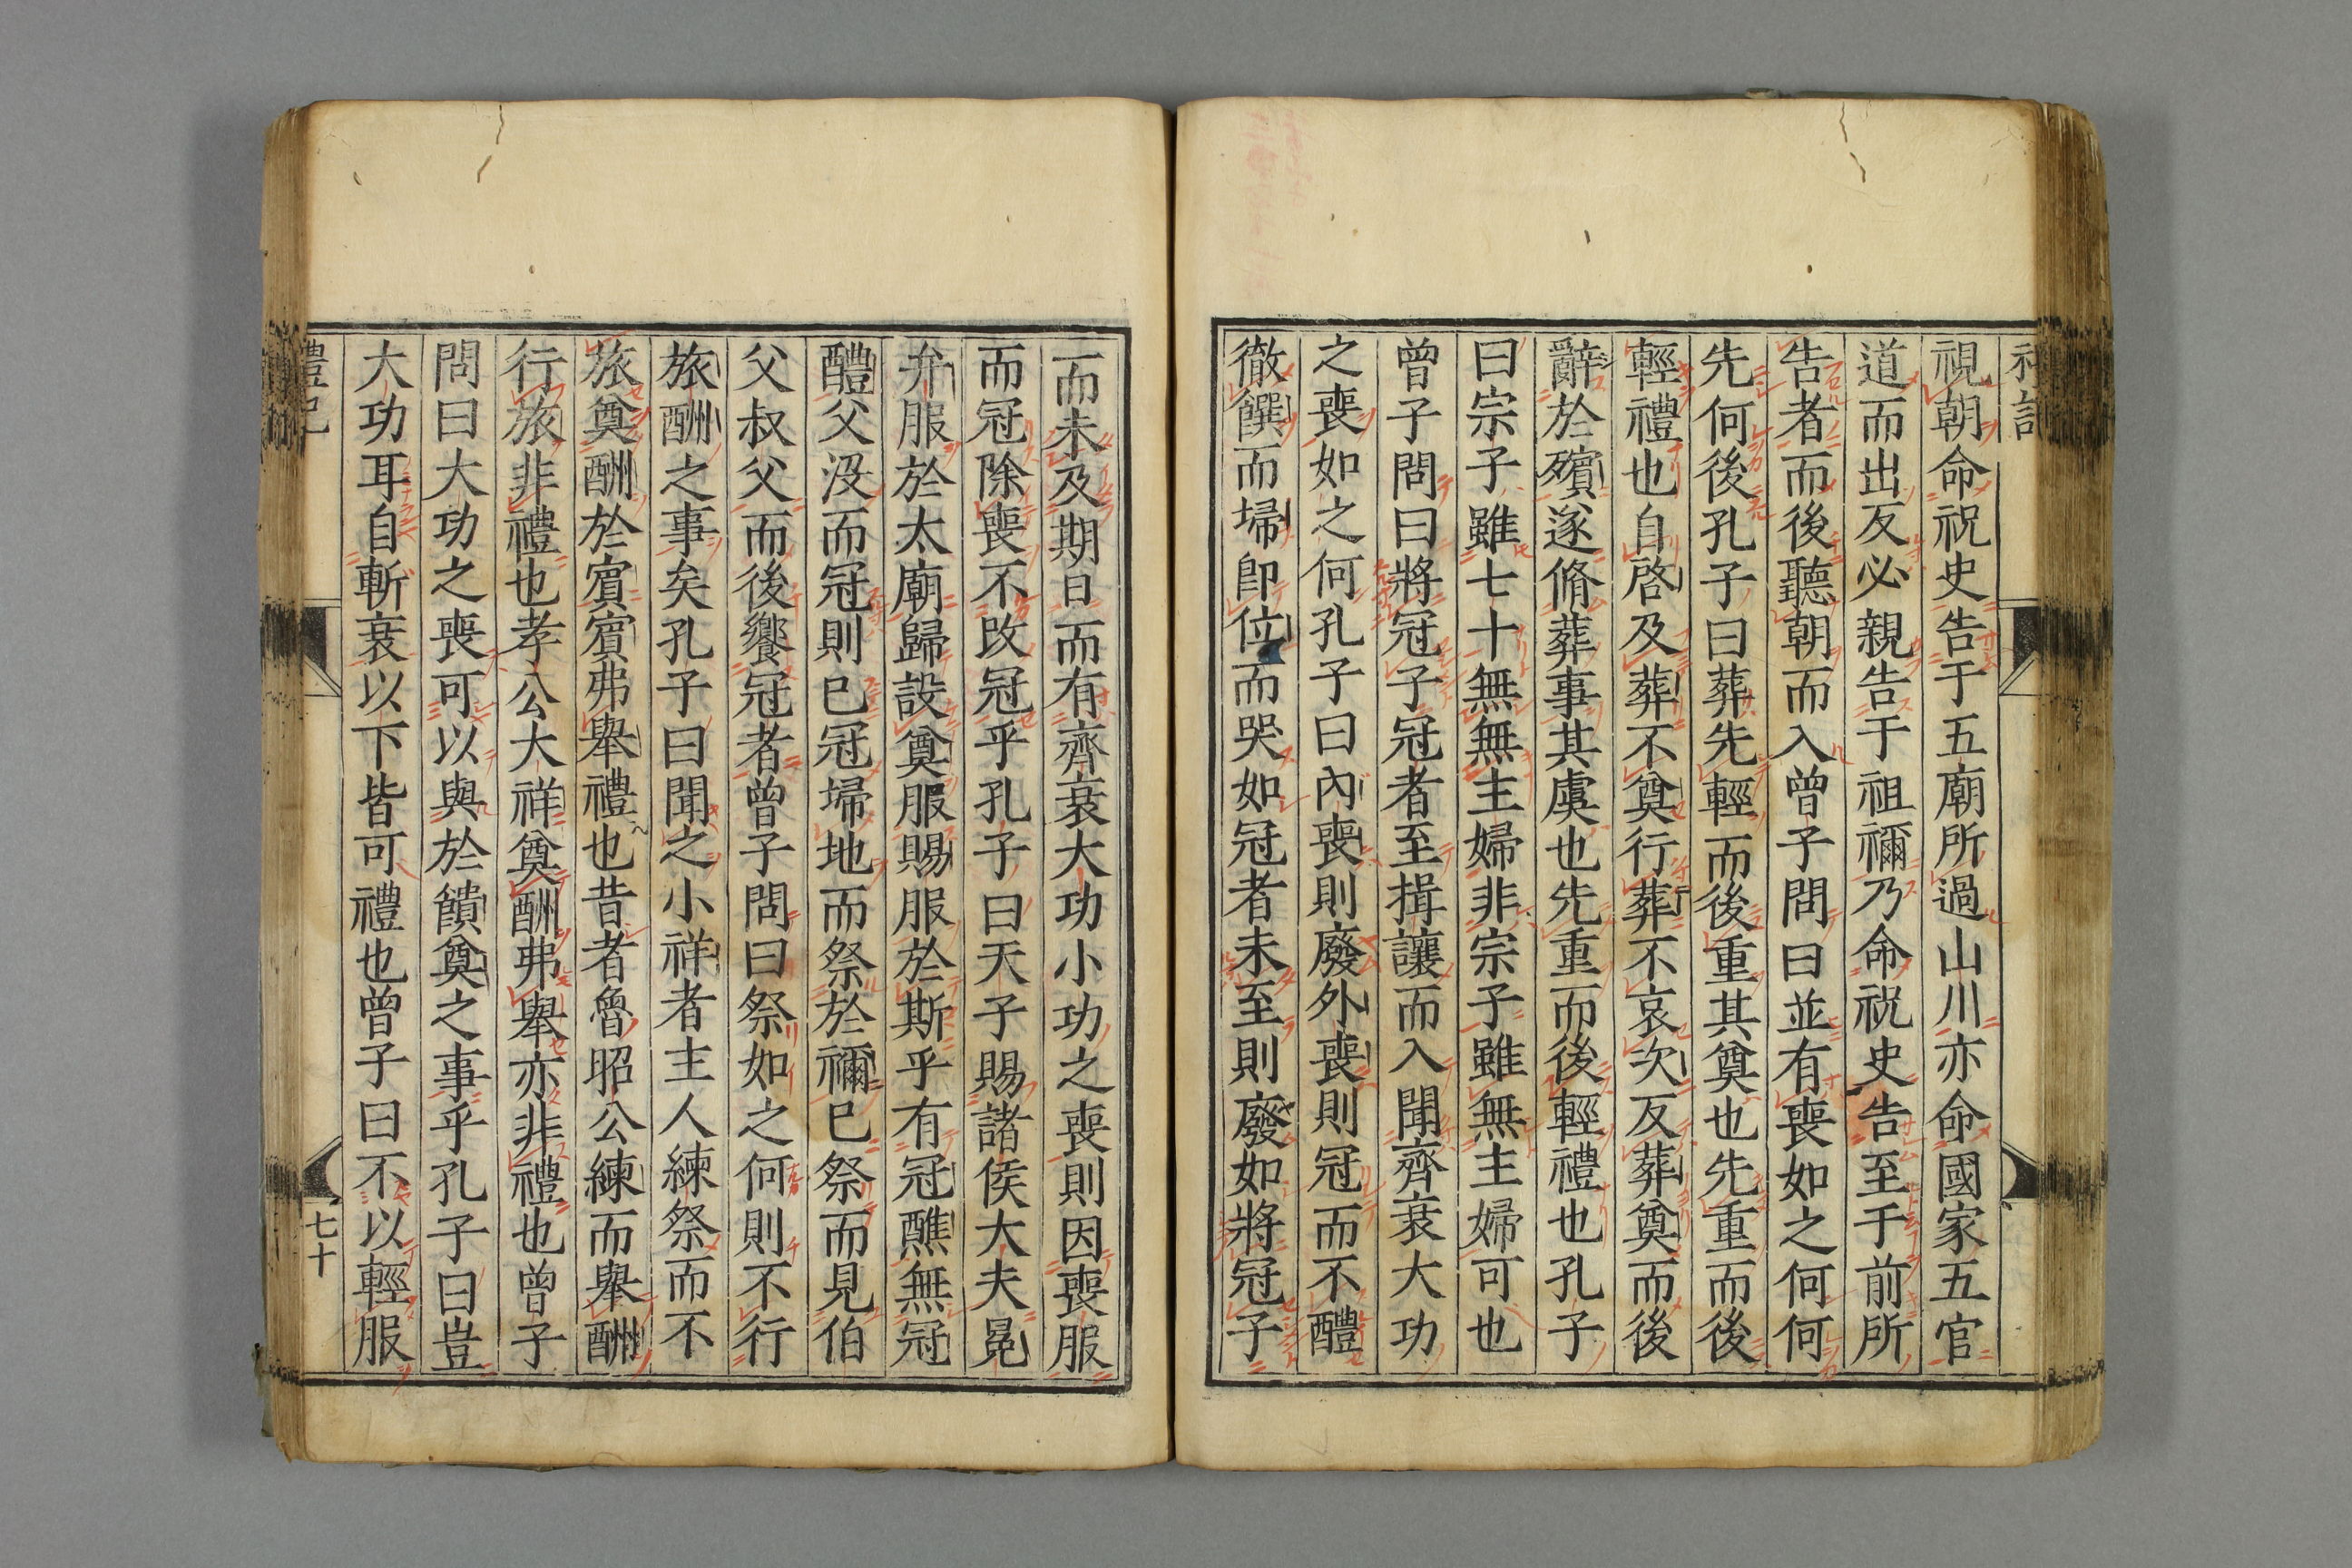 視朝命祝史告于五廟所過山川亦命國家五官
道而出反必親告于祖禰乃命祝史告至于前所
告者而後聽朝而入曾子問曰並有喪如之何何
先何後孔子曰葬先輕而後重其奠也先重而後
輕禮也自啓及葬不奠行葬不哀次反葬奠而後
辭於殯遂脩葬事其虞也先重而後輕禮也孔子
曰宗子雖七十無無主婦非宗子雖無主婦可也
曾子問曰將冠子冠者至揖讓而入聞齊衰大功
之喪如之何孔子曰內喪則廢外喪則冠而不醴
徹饌而埽卽位而哭如冠者未至則廢如將冠子
而未及期日而有齊衰大功小功之喪則因喪服
而冠除喪不改冠乎孔子曰天子賜諸侯大夫冕
弁服於太廟歸設奠服賜服於斯乎有冠醮無冠
醴父沒而冠則已冠埽地而祭於禰已祭而見伯
父叔父而後饗冠者曾子問曰祭如之何則不行
旅酬之事矣孔子曰聞之小祥者主人練祭而不
旅奠酬於賓賓弗舉禮也昔者魯昭公練而舉酬
行旅非禮也孝公大祥奠酬弗舉亦非禮也曾子
問曰大功之喪可以與於饋奠之事乎孔子曰豈
大功耳自斬衰以下皆可禮也曾子曰不以輕服
禮記
七十